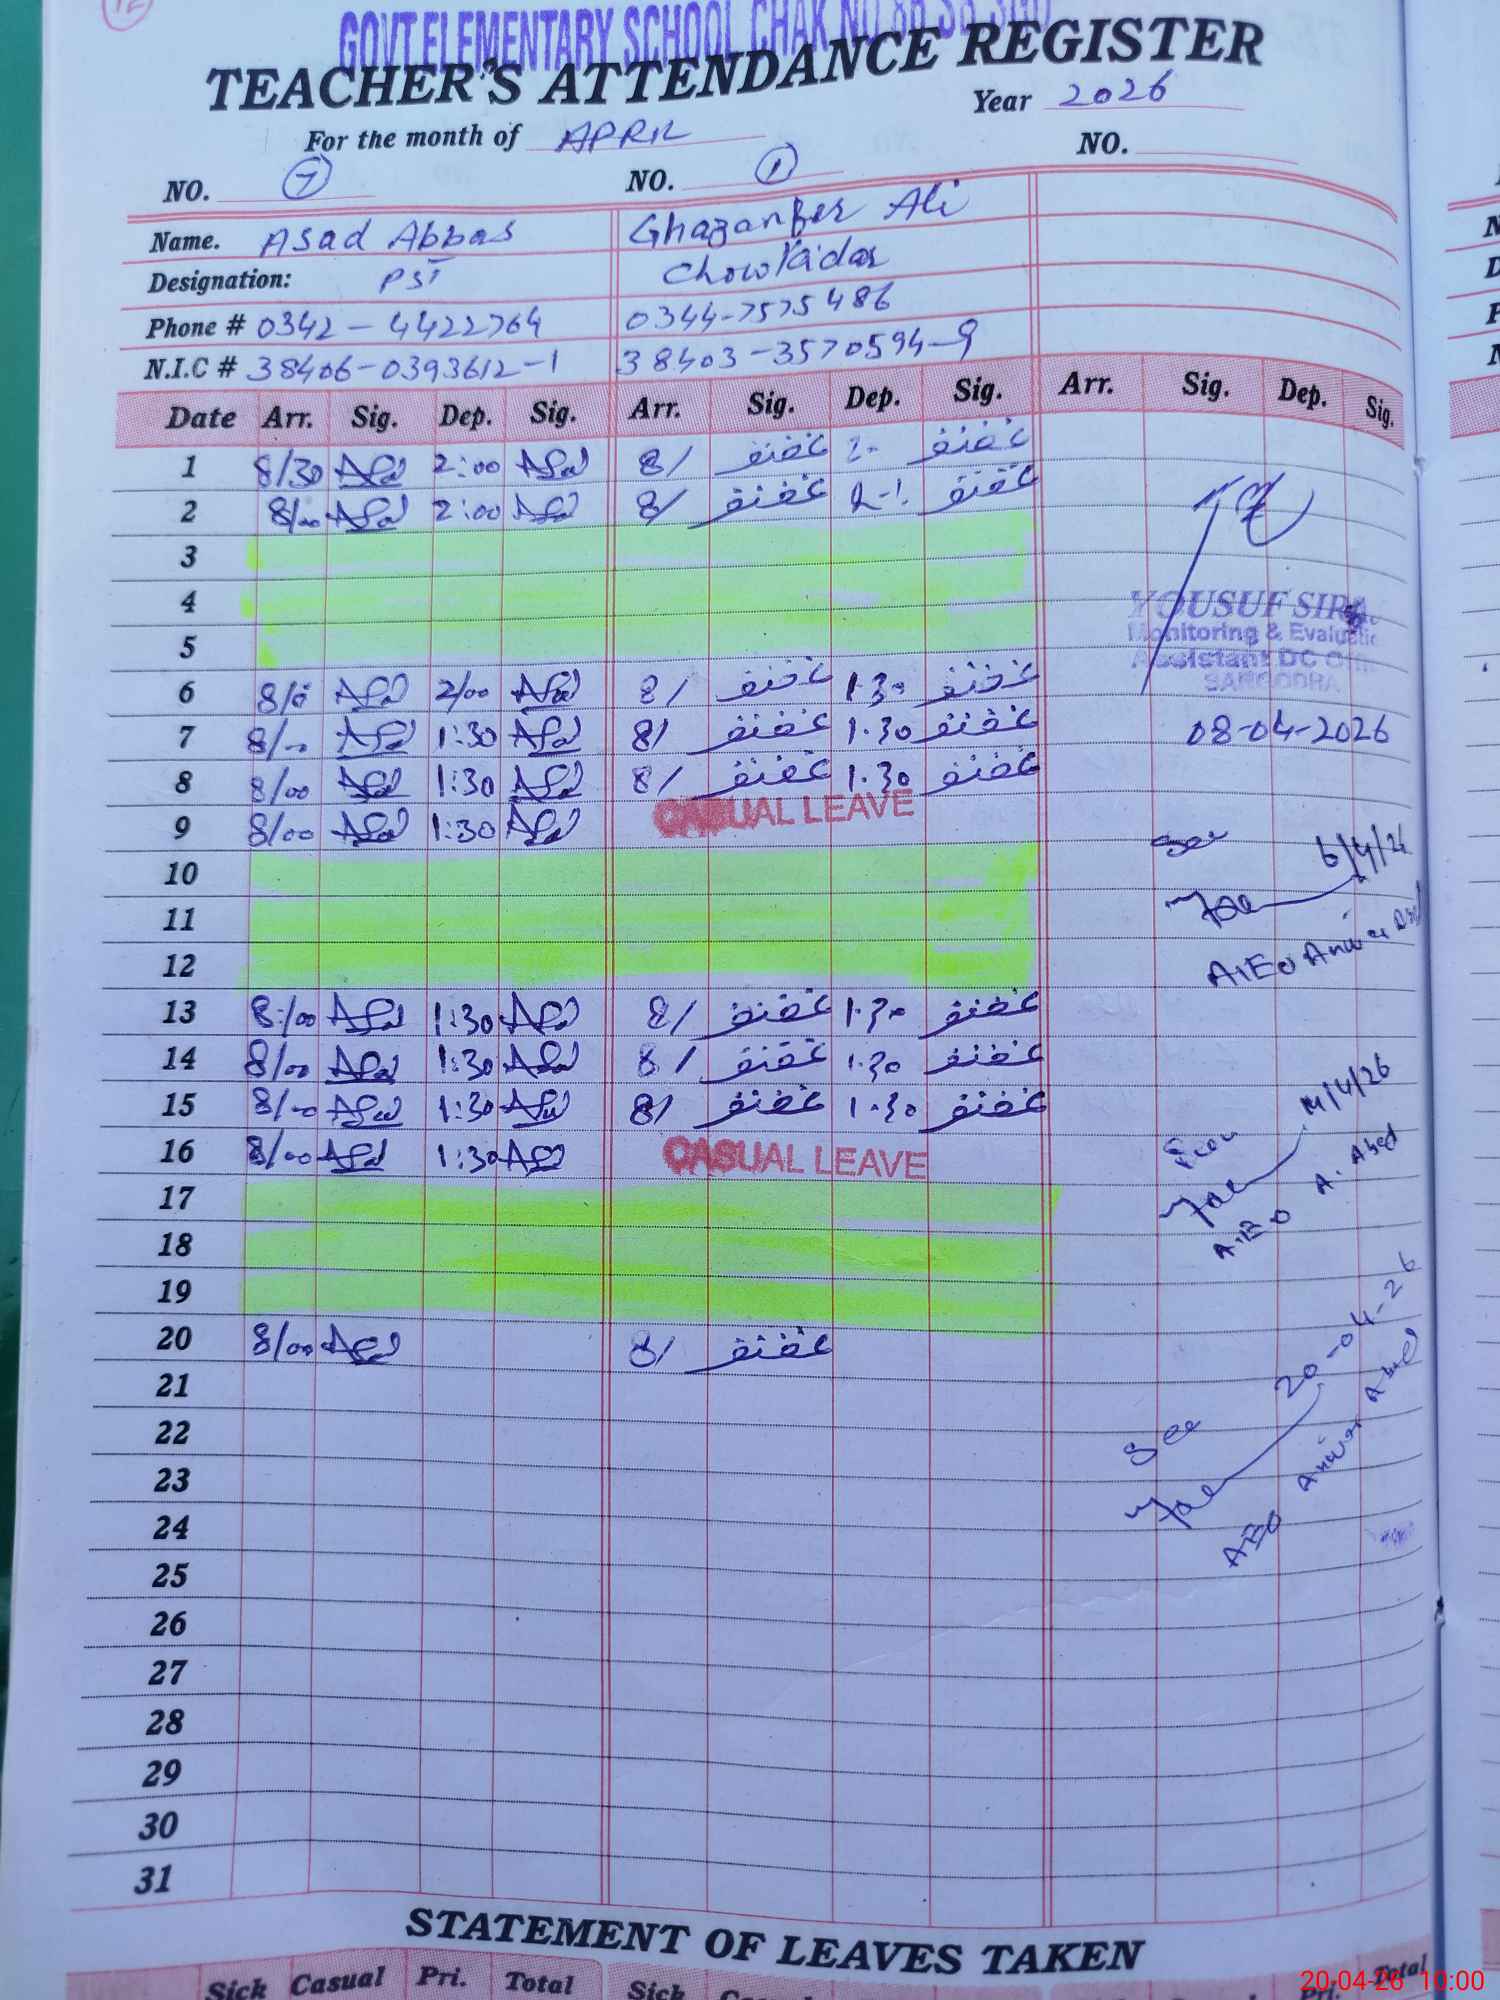 GOVT.ELEMENTARY SCHOOL CHAK NO 88 SB SGD
TEACHER'S ATTENDANCE REGISTER
For the month of APRIL Year 2026
NO. 7 NO. 1 NO.
Name. Asad Abbas Ghazanfer Ali
Designation: PST Chowkidar
Phone # 0342-4422764 0344-7575486
N.I.C # 38406-0393612-1 38403-3570594-9
Date Arr. Sig. Dep. Sig. Arr. Sig. Dep. Sig. Arr. Sig. Dep. Sig.
1 8/30 Asad 2:00 Asad 8/ غضنفر غضنفر
2 8/00 Asad 2:00 Asad 8/ غضنفر غضنفر
3
4
5
YOUSUF SIRA
Monitoring & Evaluatio
Assistant DC Offi
SARGODHA
6 8/0 Asad 2/00 Asad 8/ غضنفر 1.30 غضنفر
7 8/00 Asad 1:30 Asad 8/ غضنفر 1.30 غضنفر 08-04-2026
8 8/00 Asad 1:30 Asad 8/ غضنفر 1.30 غضنفر
9 8/00 Asad 1:30 Asad CASUAL LEAVE
See 6/4/26
10
11
12
AEO Anwar
13 8/00 Asad 1:30 Asad 8/ غضنفر 1.30 غضنفر
14 8/00 Asad 1:30 Asad 8/ غضنفر 1.30 غضنفر
15 8/00 Asad 1:30 Asad 8/ غضنفر 1.30 غضنفر
16 8/00 Asad 1:30 Asad CASUAL LEAVE
Seen 14/4/26
17
AEO A.
18
19
20 8/00 Asad 8/ غضنفر
20-04-26
21
22
See
23
24
AEO Anwar
25
26
27
28
29
30
31
STATEMENT OF LEAVES TAKEN
Sick Casual Pri. Total Sick Casual Pri. Total
20-04-26 10:00